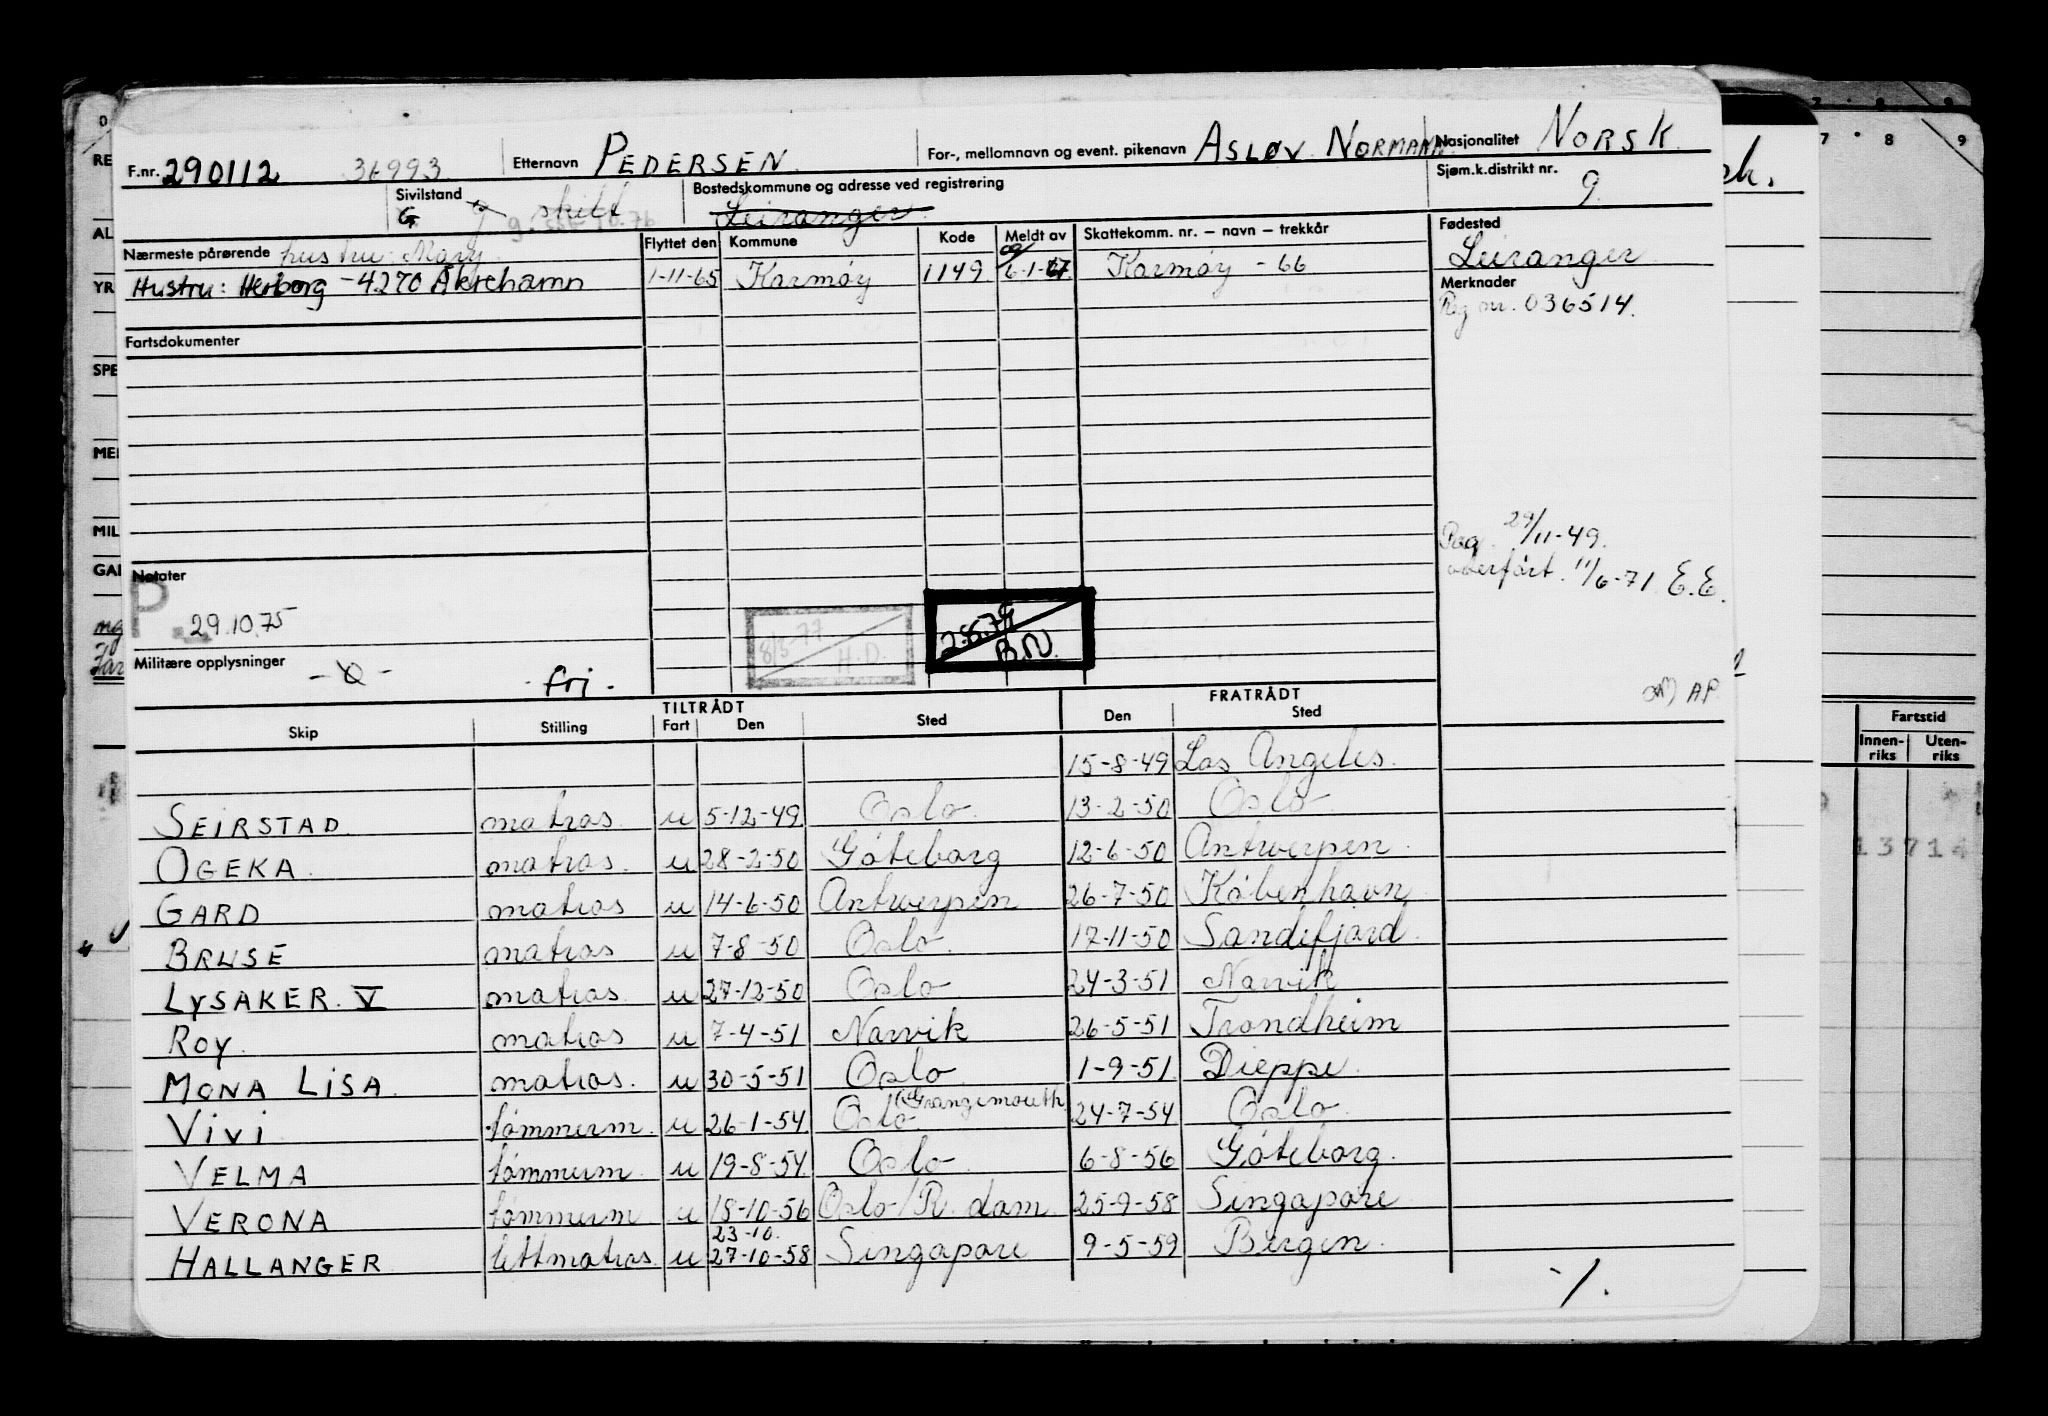 F.nr. 290112 36993 Etternavn PEDERSEN For-, mellomnavn og event. pikenavn ASLØV NORMANN Nasjonalitet NORSK
Sivilstand G g skilt Bostedskommune og adresse ved registrering Leiranger Sjøm.k.distrikt nr. 9
Nærmeste pårørende hustru: Mary Flyttet den Kommune Kode Meldt av Skattekomm. nr. – navn – trekkår Fødested
Hustru: Herborg - 4270 Åkrehamn 1-11-65 Karmøy 1149 6-1-67 Karmøy - 66 Leiranger
Merknader
Reg nr. 036514.
Fartsdokumenter
29/11-49.
overført 11/6-71 E.E.
Notater
P. 29.10.75
8/5-77 H.D.
B.N.
Militære opplysninger - fri -
AP
TILTRÅDT FRATRÅDT
Skip Stilling Fart Den Sted Den Sted
15-8-49 Los Angeles
SEIRSTAD matros u 5-12-49 Oslo 13-2-50 Oslo
OGEKA matros u 28-2-50 Göteborg 12-6-50 Antwerpen
GARD matros u 14-6-50 Antwerpen 26-7-50 København
BRUSE matros u 7-8-50 Oslo 17-11-50 Sandefjord
LYSAKER V matros u 27-12-50 Oslo 24-3-51 Narvik
ROY matros u 7-4-51 Narvik 26-5-51 Trondheim
MONA LISA matros u 30-5-51 Oslo 1-9-51 Dieppe
VIVI tømmerm. u 26-1-54 Oslo (Grangemouth 24-7-54 Oslo
VELMA tømmerm u 19-8-54 Oslo 6-8-56 Göteborg
VERONA tømmerm u 18-10-56 Oslo/R.dam 25-9-58 Singapore
23-10.
HALLANGER lettmatros u 27-10-58 Singapore 9-5-59 Bergen
-/.
7 8 9
7 8 9
Fartstid
Innenriks Utenriks
13714